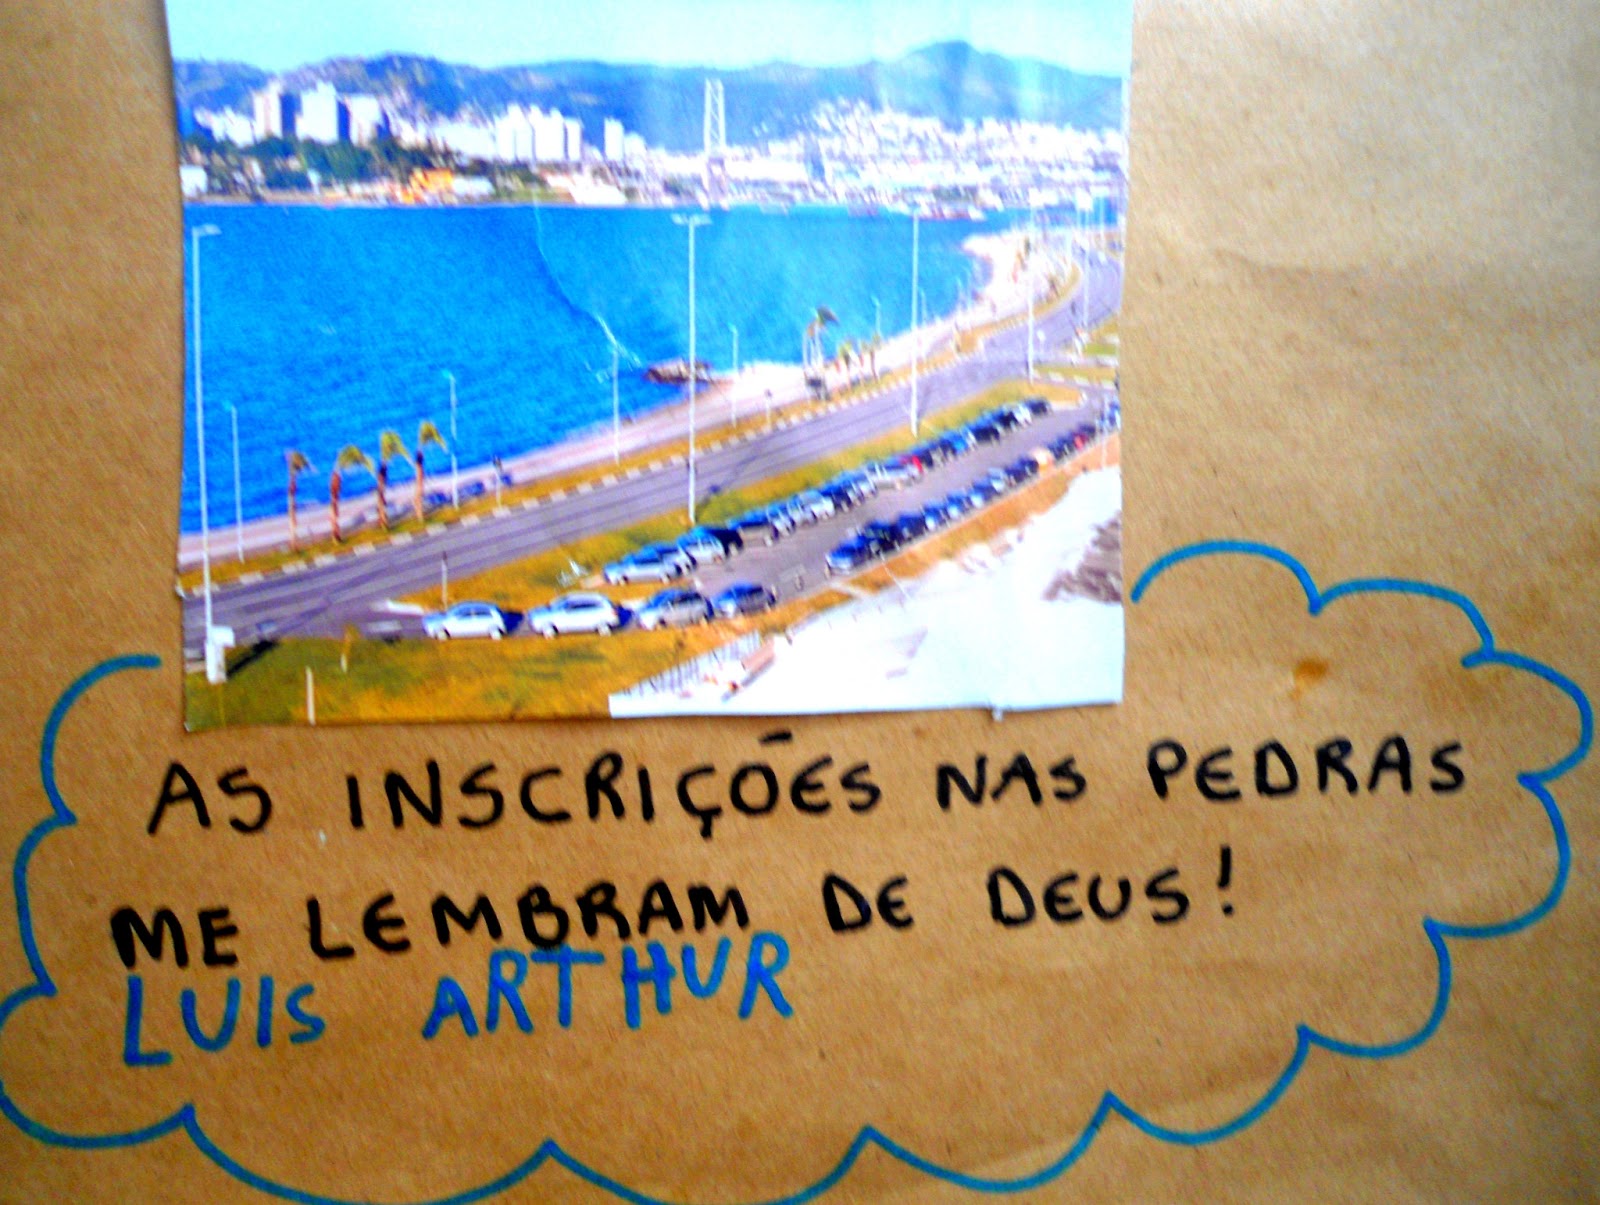 AS INSCRIÇÕES NAS PEDRAS
ME LEMBRAM DE DEUS!
LUIS ARTHUR